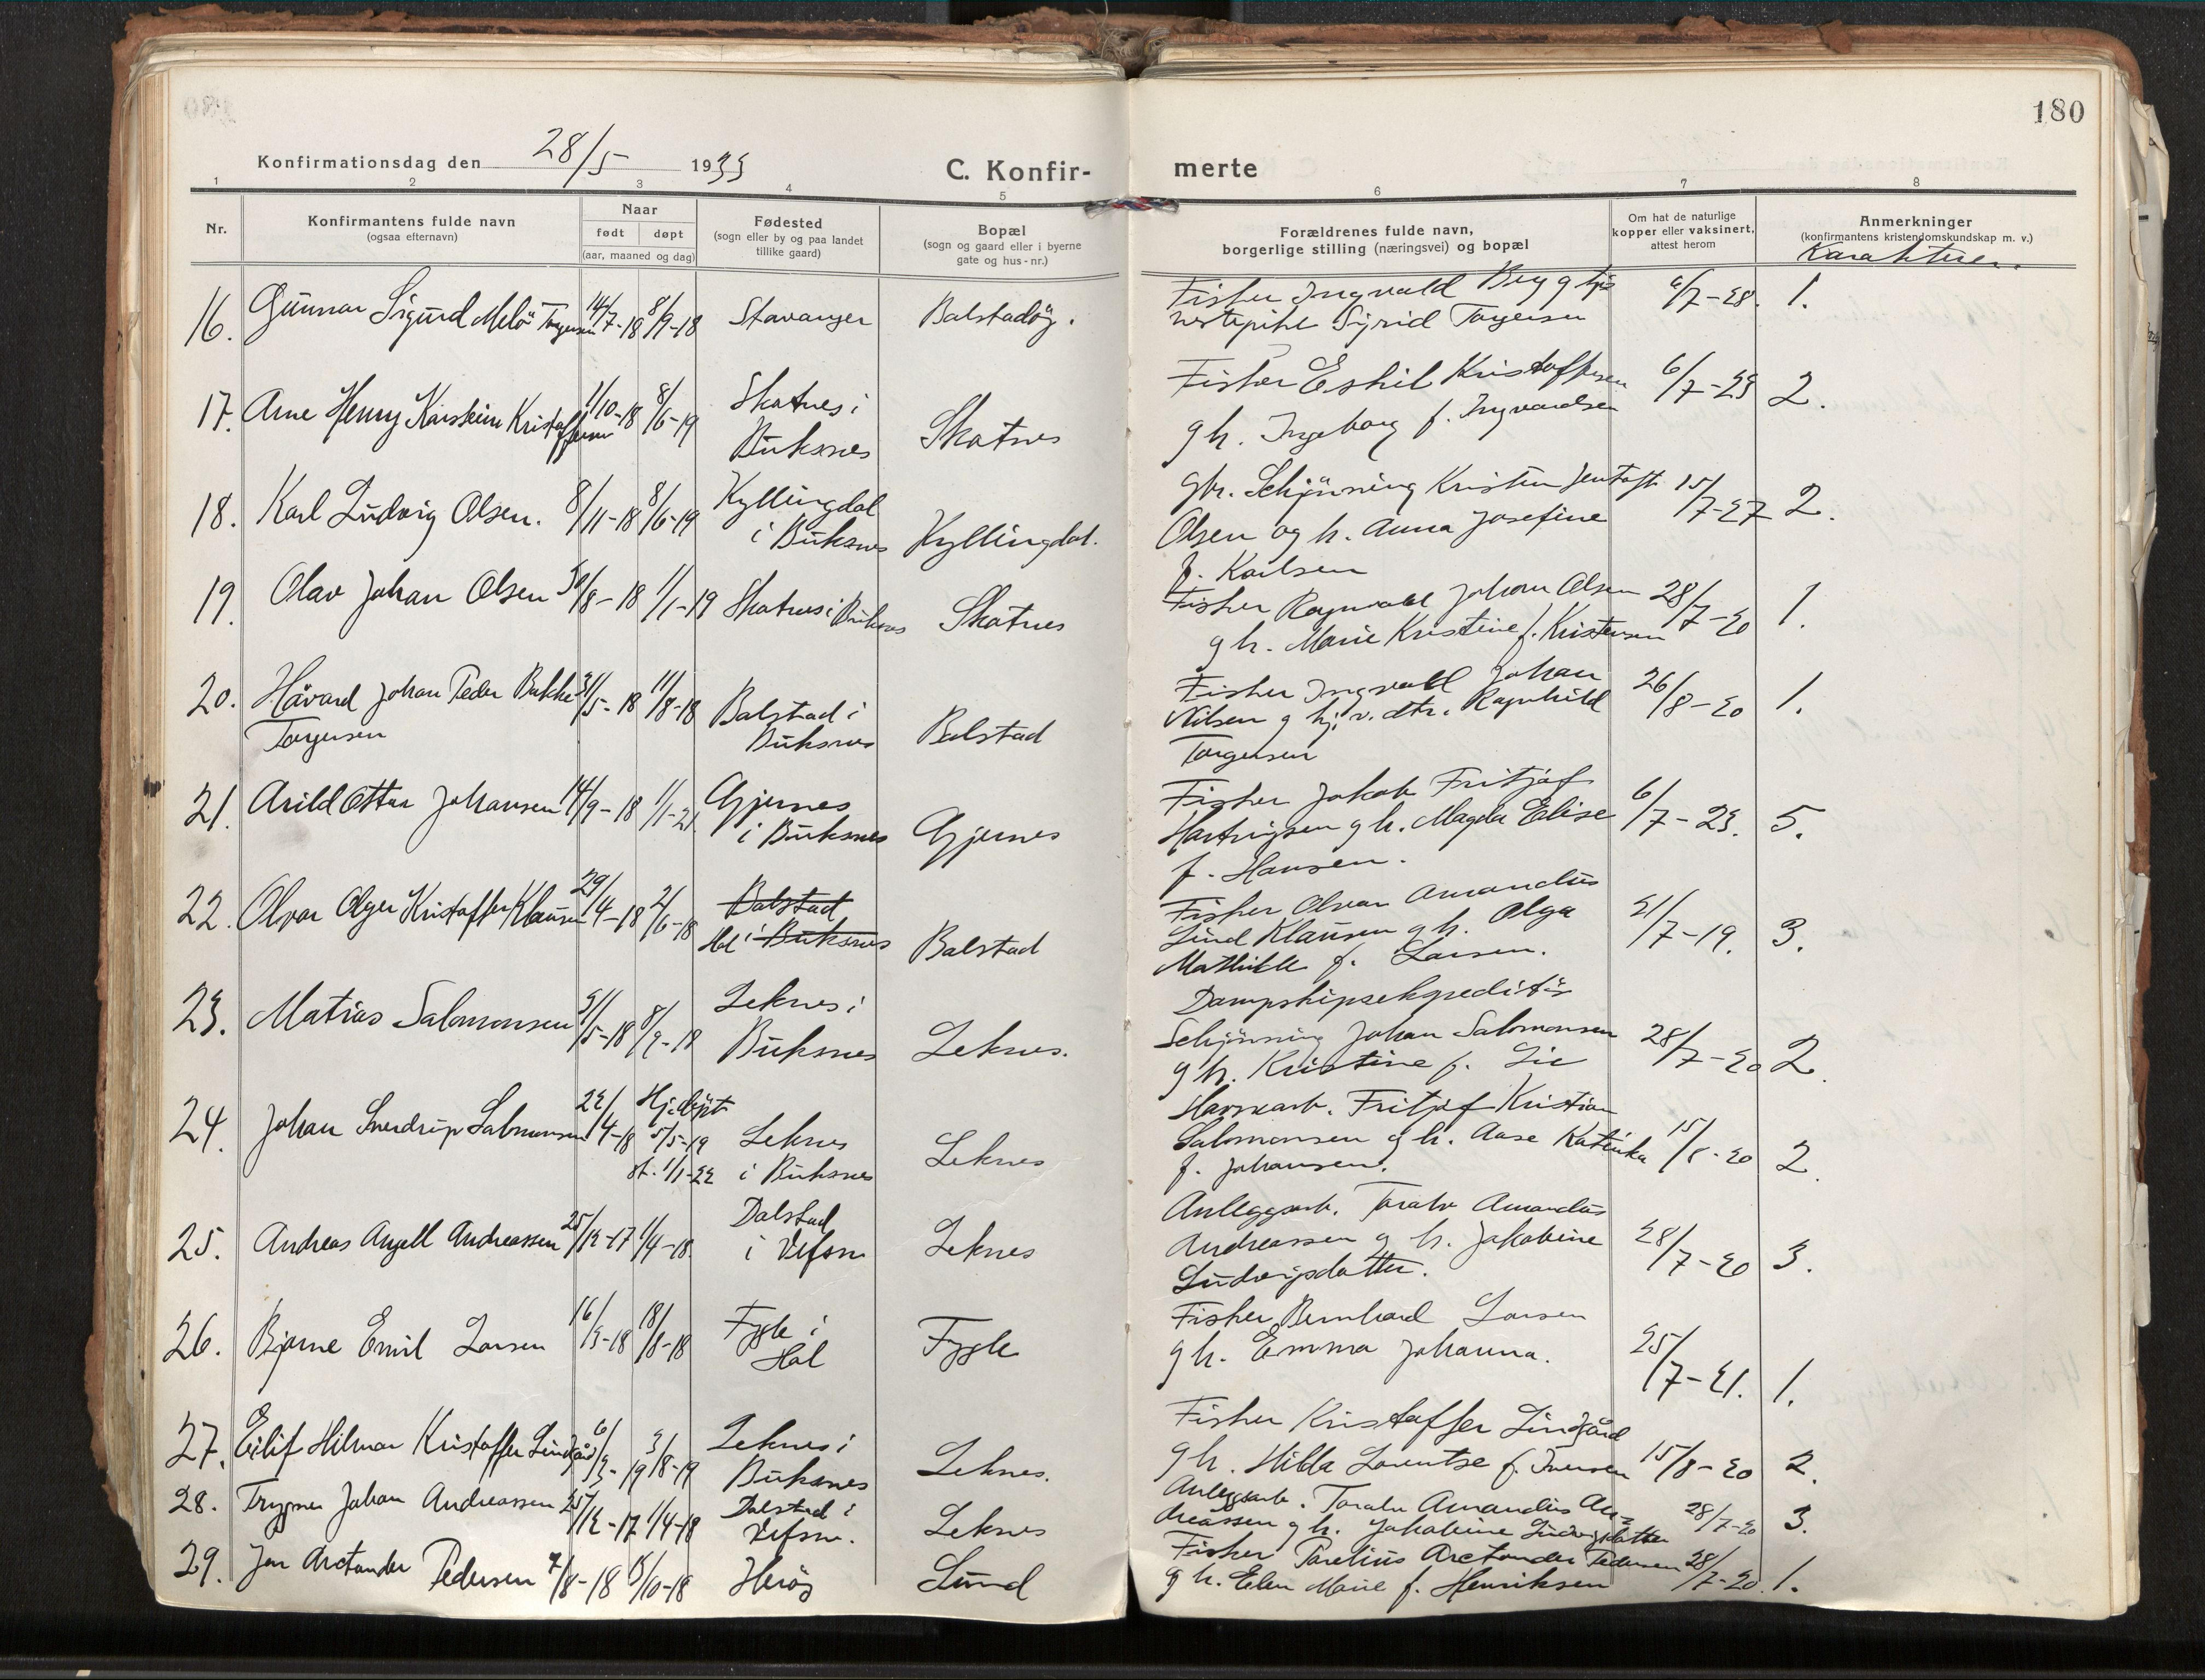 180
Konfirmationsdag den 28/5 1933
C. Konfir- merte
1 2 3 4 5 6 7 8
Nr.
Konfirmantens fulde navn
(ogsaa efternavn)
Naar
født døpt
(aar, maaned og dag)
Fødested
(sogn eller by og paa landet
tillike gaard)
Bopæl
(sogn og gaard eller i byerne
gate og hus-nr.)
Forældrenes fulde navn,
borgerlige stilling (næringsvei) og bopæl
Om hat de naturlige
kopper eller vaksinert,
attest herom
Anmerkninger
(konfirmantens kristendomskundskap m. v.)
Karakterer.
16. Gunnar Sigurd Melö Torgersen 14/7-18 8/9-18 Stavanger Balstadöy.
Fisker Ingvald Brygg
Sigrid Torgersen
1.
17. Arne Henry Karsheim Kristoffersen 1/10-18 8/6-19 Skotnes i
Buksnes Skotnes
Fisker Eskil Kristoffersen
g h. Ingeborg f. Ingvardsen
6/7-23 2.
18. Karl Ludvig Olsen. 8/11-18 8/6-19 Kyllingdal
i Buksnes Kyllingdal.
Gbr. Schjönning Kristen Jentoft
Olsen og h. Anna Josefine
f. Karlsen
15/7-27 2.
19. Olav Johan Olsen 30/8-18 1/1-19 Skotnes i Buksnes Skotnes
Fisker Ragnvald Johan Olsen
g h. Marie Kristine f. Kristensen
28/7-20 1.
20. Håvard Johan Peder Bakke 31/5-18 11/8-18 Balstad i
Torgersen Buksnes Balstad
Fisker Ingvald Johan
Nilsen g hj. v. dtr. Ragnhild
Torgersen
26/8-20 1.
21. Arild Ottar Johansen 14/9-18 1/1-21 Gjernes
i Buksnes Gjernes
Fisker Jakob Fritjof
Hartvigsen g h. Magda Elise
f. Hansen.
6/7-23. 5.
22. Olvar Olger Kristoffer Klausen 29/4-18 2/6-18 Balstad
Hol i Buksnes Balstad
Fisker Olvar Amandus
Lind Klausen g h. Olga
Mathilde f. Larsen.
31/7-19. 3.
23. Matias Salomonsen 31/5-18 8/9-18 Leknes i
Buksnes Leknes.
Dampskipsekspeditör
Schjönning Johan Salomonsen
g h. Kristine f. Lie
28/7-20 2.
24. Johan Sverdrup Salomonsen 22/4-18 Hj.döpt
5/5-19
st. 1/1-22
Leknes
i Buksnes Leknes
Havnearb. Fritjof Kristian
Salomonsen g h. Aase Katinka
f. Johansen.
15/8-20 2.
25. Andreas Angell Andreassen 25/12-17 1/4-18 Dalstad
i Vefsn Leknes
Anleggsarb. Toralv Amandus
Andreassen g h. Jakobine
Ludvigsdatter.
28/7-20 3.
26. Bjarne Emil Larsen 16/3-18 18/8-18 Fygle i
Hol Fygle
Fisker Bernhard Larsen
g h. Emma Johanna.
25/7-21. 1.
27. Eilif Hilmar Kristoffer Lindgård 6/3-19 3/8-19 Leknes i
Buksnes Leknes.
Fisker Kristoffer Lindgård
g h. Hilda Lorentse f. Iversen
15/8-20 2.
28. Trygve Johan Andreassen 25/12-17 1/4-18 Dalstad i
Vefsn. Leknes
Anleggsarb. Toralv Amandus An-
dreassen g h. Jakobine Ludvigsdatter
28/7-20 3.
29. Jan Arctander Pedersen 7/8-18 13/10-18 Heröy Lund
Fisker Parelius Arctander Pedersen
g h. Elen Marie f. Henriksen
28/7-20. 1.